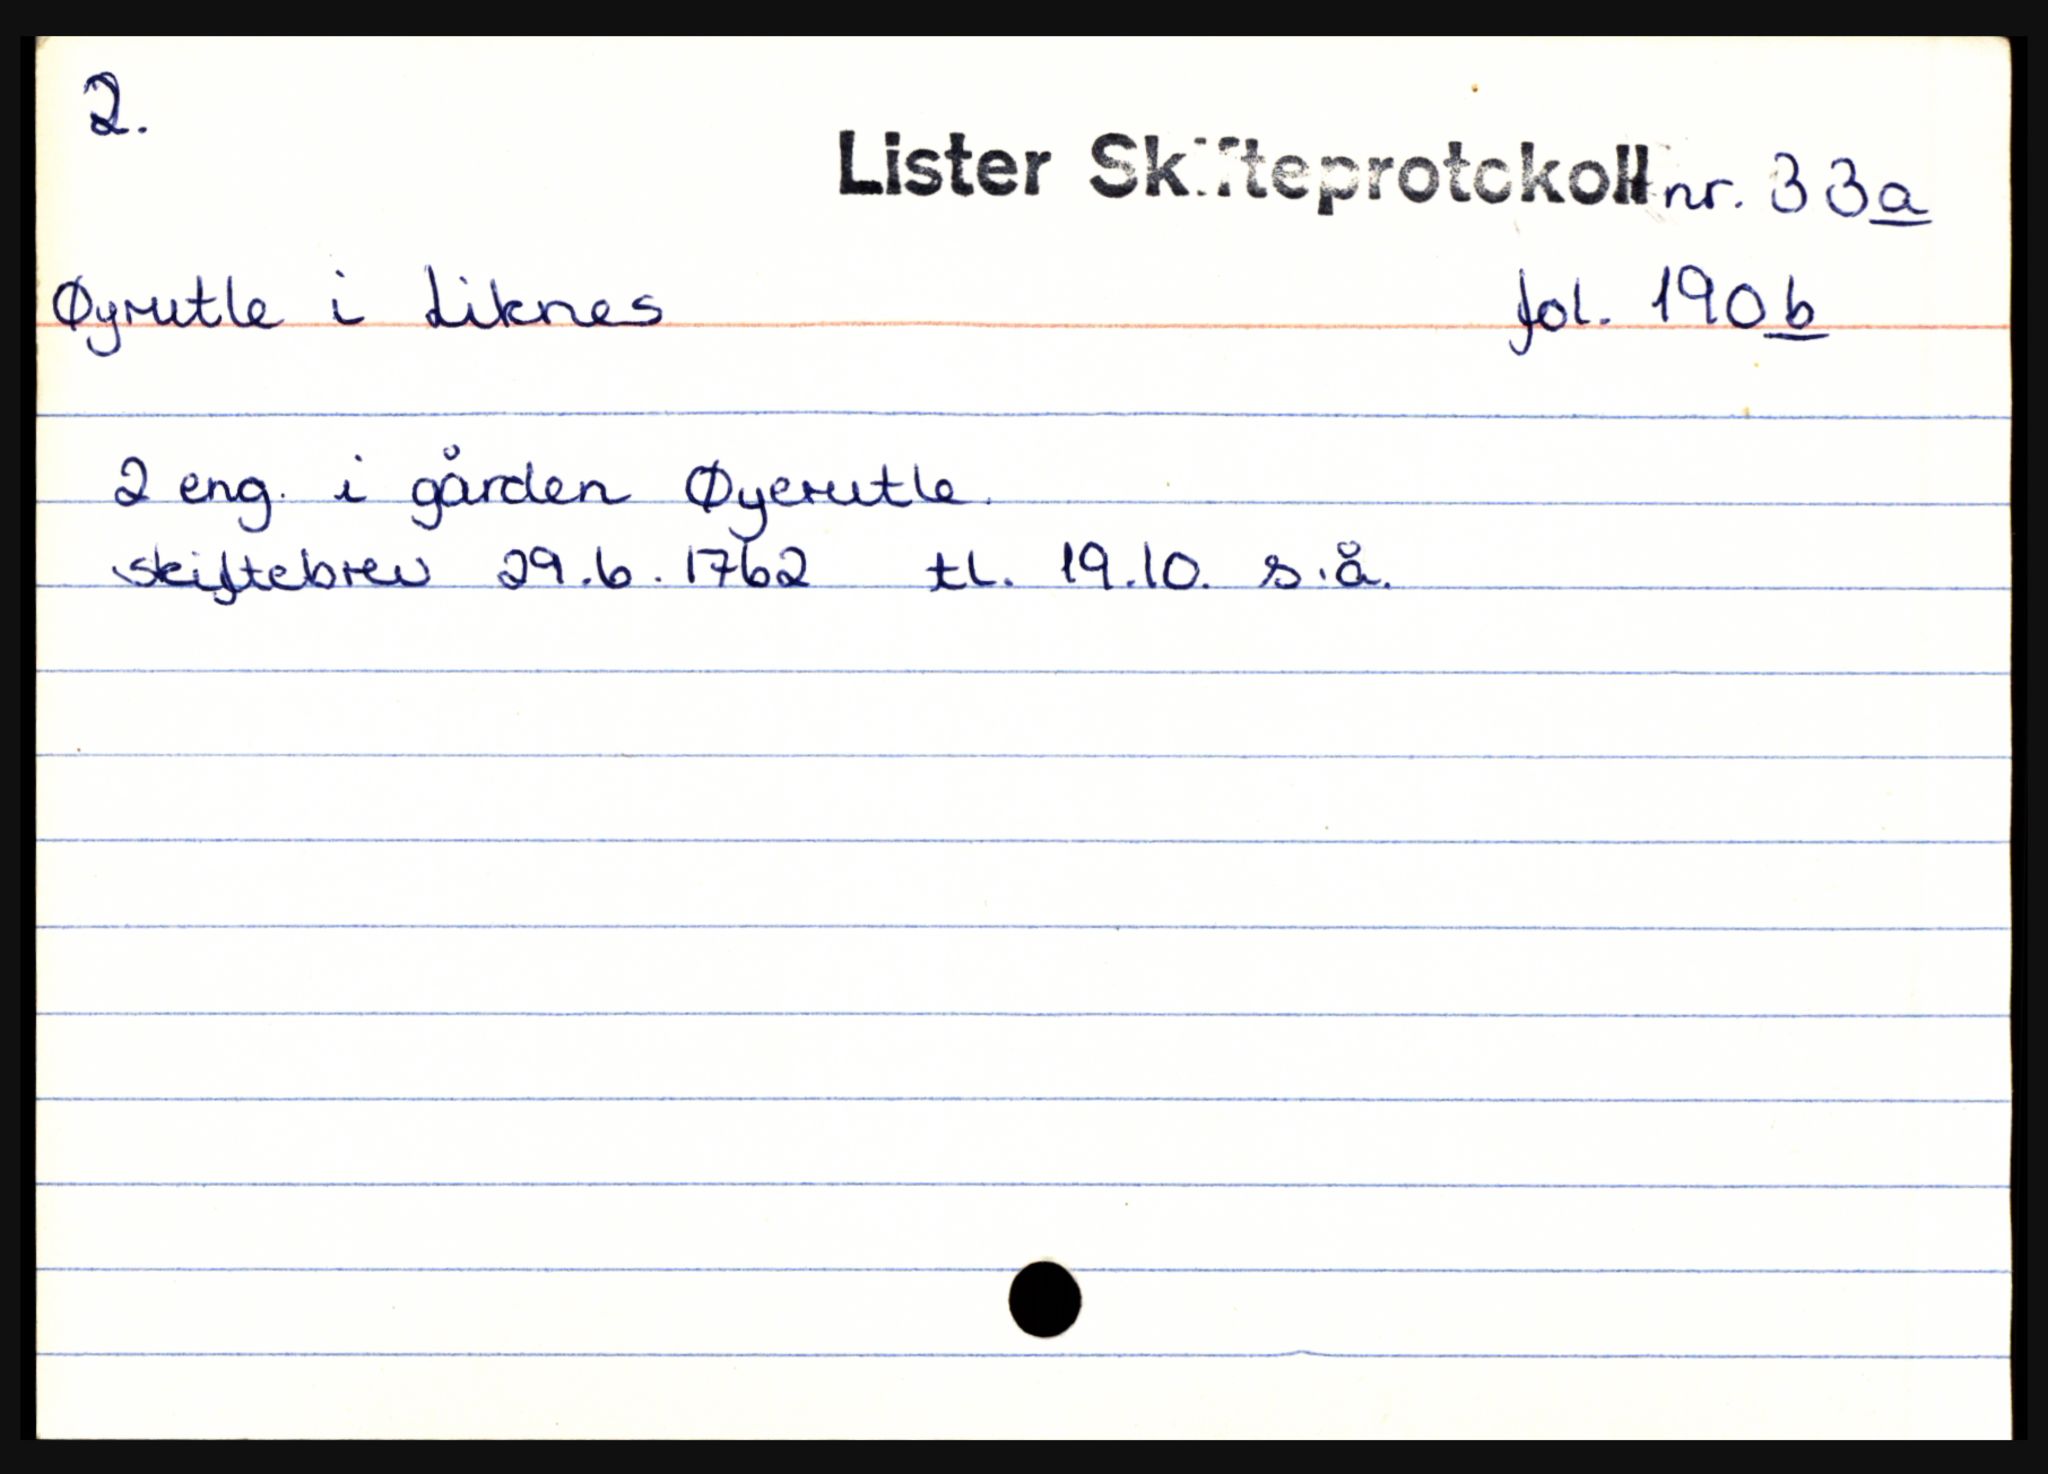 2.
Lister Skifteprotokoll nr. 33a
Øyrutle i Liknes fol. 190b
2 eng. i gården Øyerutle.
skiftebrev 29.6.1762 tl. 19.10. s.å.